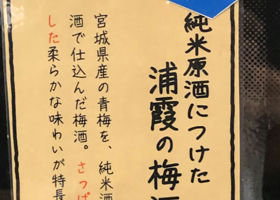 純米原酒につけた
浦霞の梅酒
宮城県産の青梅を、純米酒
酒で仕込んだ梅酒。さっぱ
した柔らかな味わいが特長